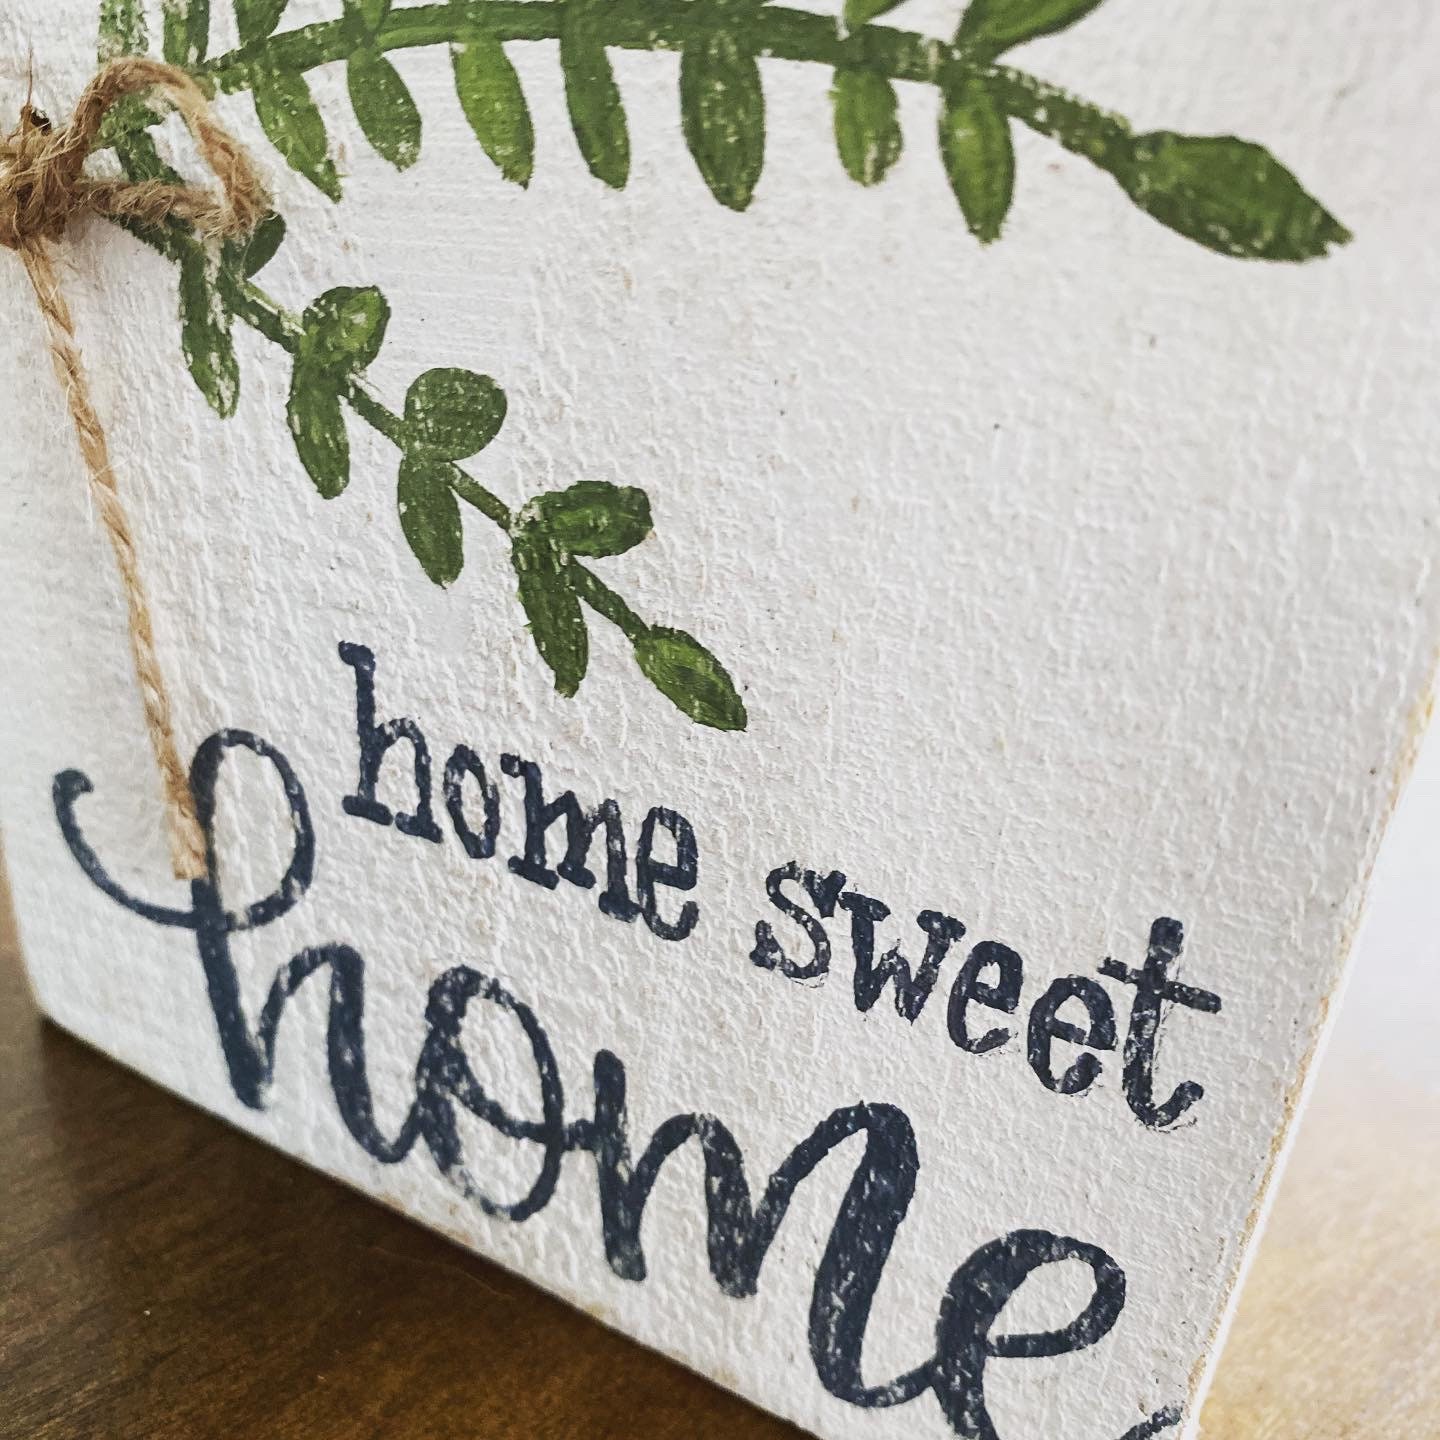 home sweet
home